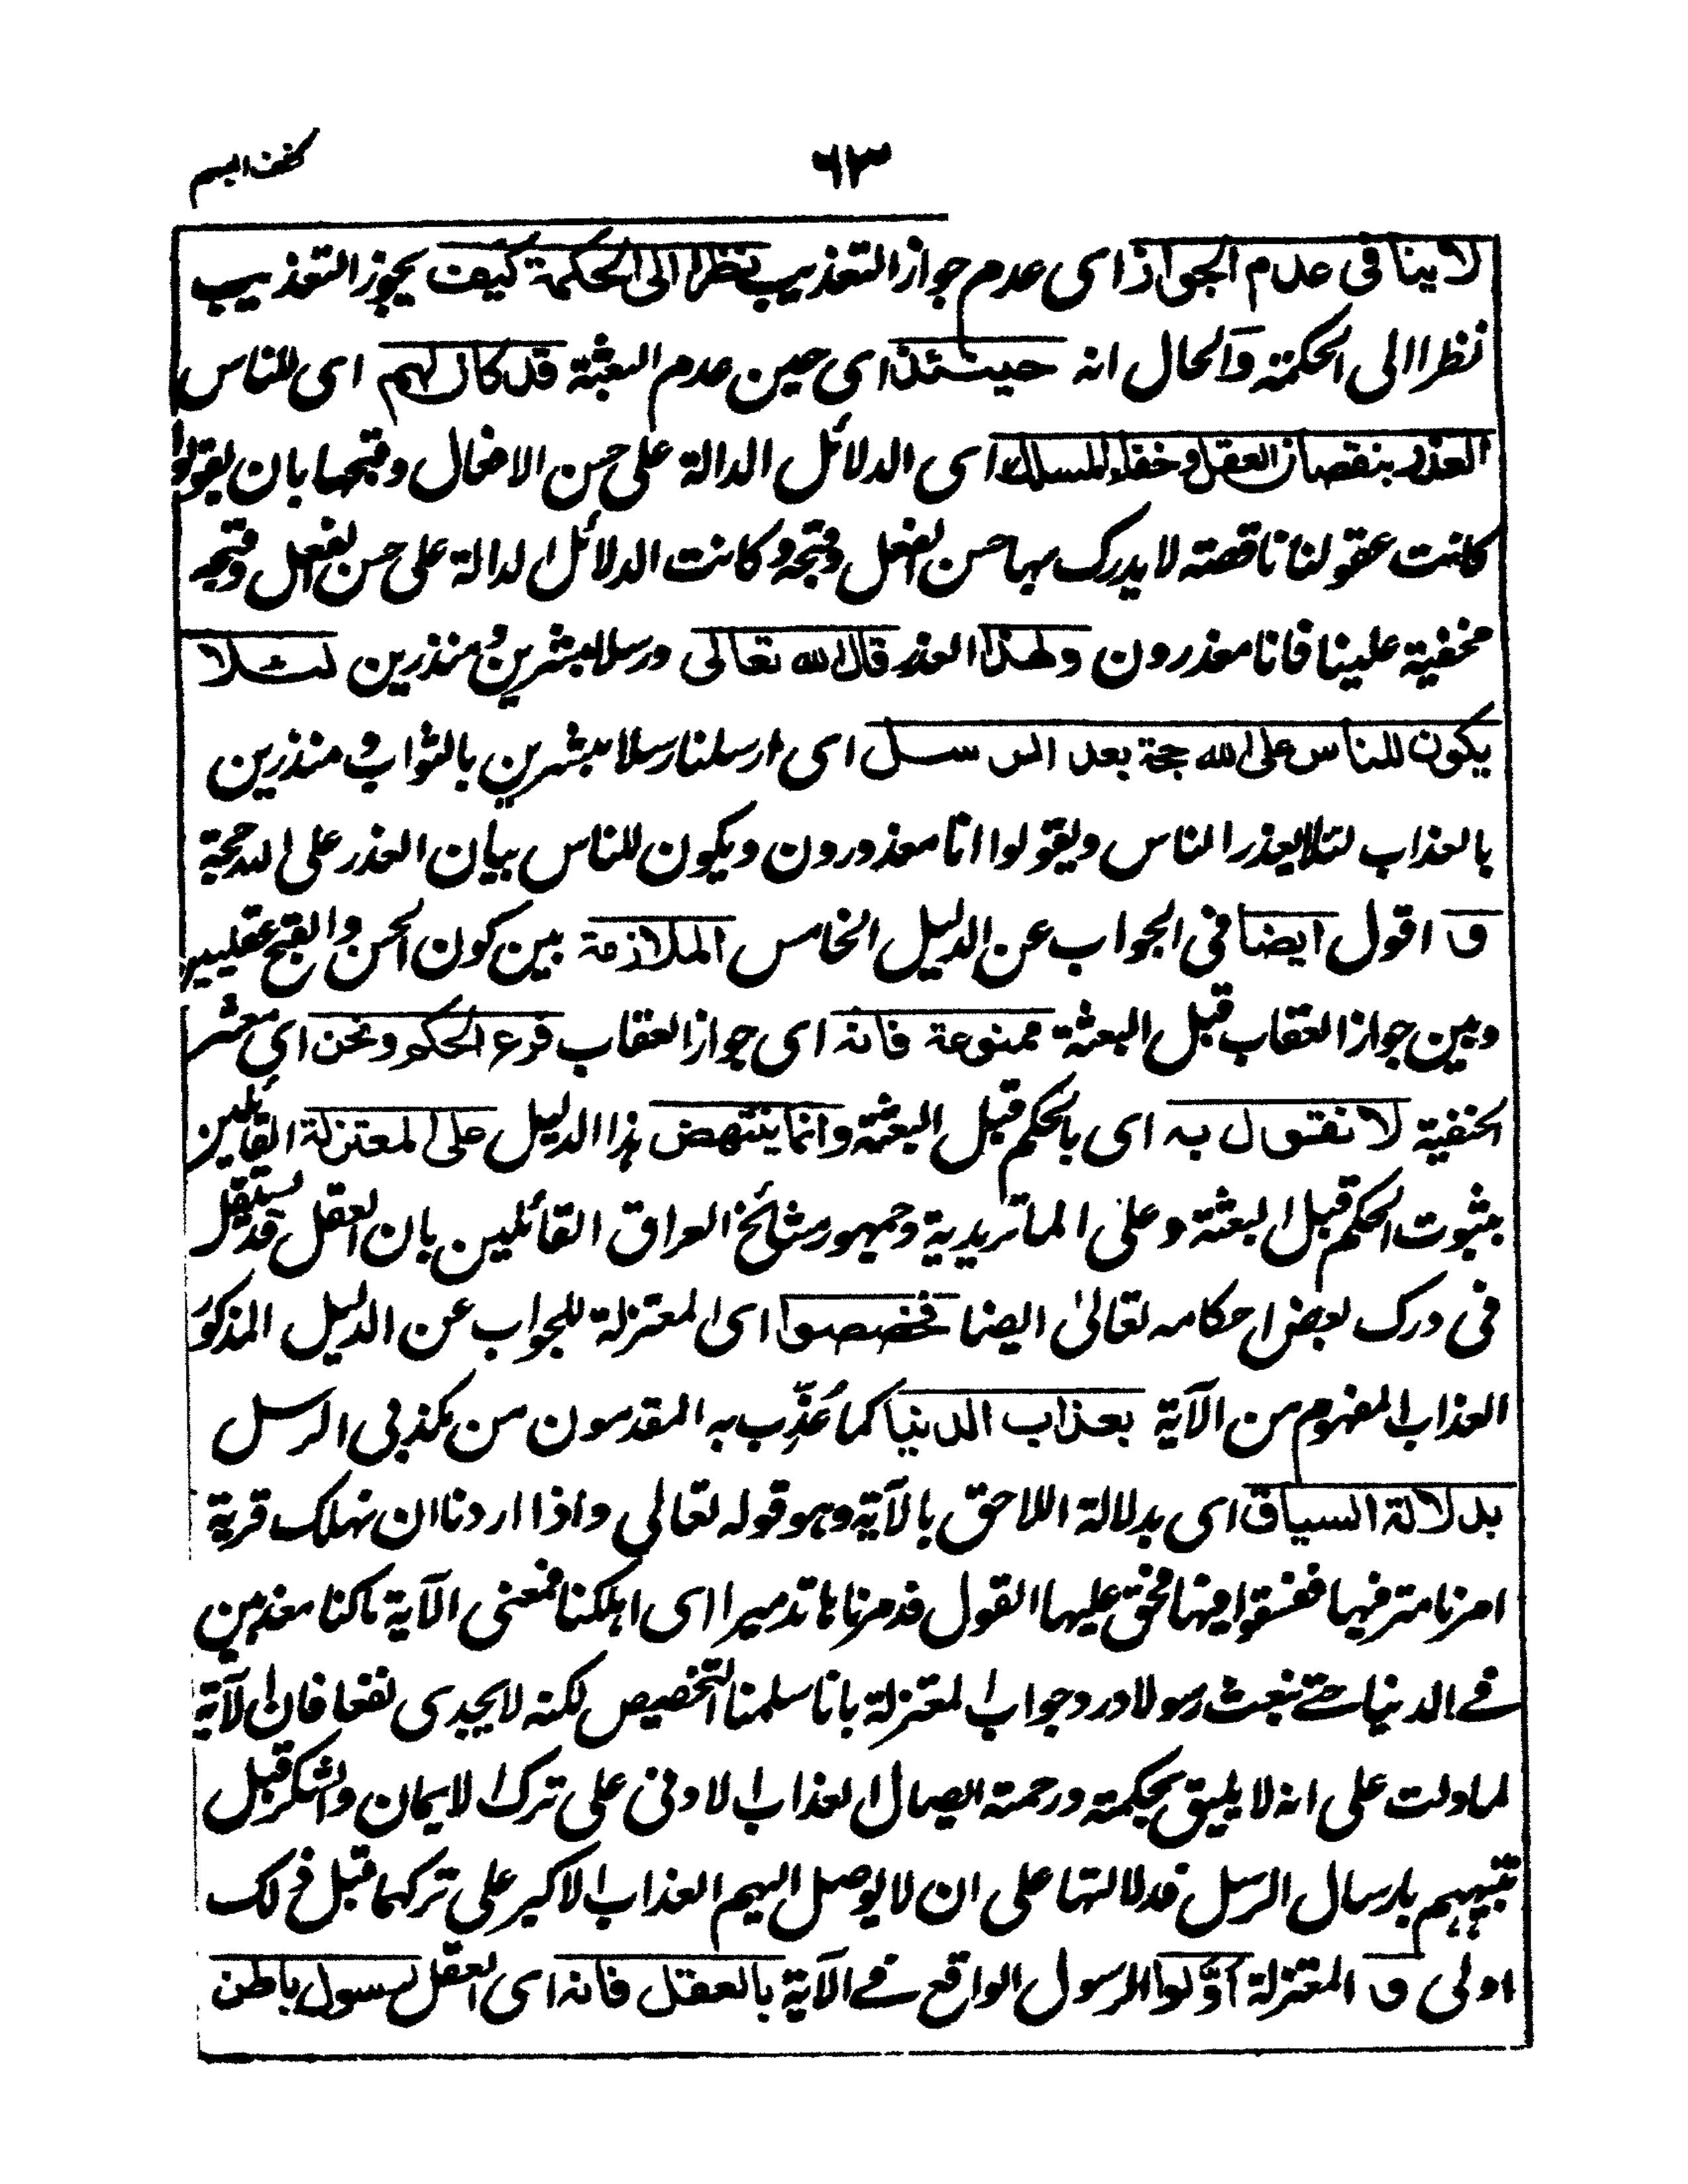 كشف المبہم
٦٣
لا ینافی عدم الجواز ای عدم جواز التعذیب نظرا الی الحکمة کیف یجوز التعذیب
نظرا الی الحکمة والحال انه حینئذ ای حین عدم البعثة قد کان لهم ای للناس
العذر بنقصان العقل وخفاء المسالك ای الدلائل الدالة علی حسن الافعال وقبحها بان یقولوا
کانت عقولنا ناقصة لا یدرک بها حسن الفعل وقبحه وکانت الدلائل الدالة علی حسن الفعل وقبحه
مخفیة علینا فانا معذورون ولهذا العذر قال الله تعالی ورسلا مبشرین ومنذرین لئلا
یکون للناس علی الله حجة بعد الرسل ای ارسلنا رسلا مبشرین بالثواب ومنذرین
بالعذاب لئلا یعذر الناس ویقولوا انا معذورون ویکون للناس بیان العذر علی الله حجة
و اقول ایضا فی الجواب عن الدلیل الخامس الملازمة بین کون الحسن والقبح عقلیین
وبین جواز العقاب قبل البعثة ممنوعة فانه ای جواز العقاب فرع الحکم ونحن ای معشر
الحنفیة لا نقول به ای بالحکم قبل البعثة وانما ینتهض هذا الدلیل علی المعتزلة القائلین
بثبوت الحکم قبل البعثة وعلی الماتریدیة وجمهور مشائخ العراق القائلین بان العقل قد یستقل
فی درک بعض احکامه تعالیٰ ایضا فخصصوا ای المعتزلة للجواب عن الدلیل المذکور
العذاب المفهوم من الآیة بعذاب الدنیا کما عُذِّب به المقدمون من مکذبی الرسل
بدلالة السیاق ای بدلالة اللاحق بالآیة وهو قوله تعالی واذا اردنا ان نهلک قریة
امرنا مترفیها ففسقوا فیها فحق علیها القول فدمرناها تدمیرا ای اهلکنا فمعنی الآیة ما کنا معذبین
فے الدنیا حتے نبعث رسولا ورد جواب المعتزلة بانا سلمنا التخصیص لکنه لا یجدی نفعا فان الآیة
لما دلت علی انه لا یلیق بحکمته ورحمته ایصال العذاب الادنی علی ترک الایمان والشکر قبل
تنبیههم بارسال الرسل فدلالتها علی ان لا یوصل الیهم العذاب الاکبر علی ترکهما قبل ذلک
اولی و المعتزلة اَوَّلوا الرسول الواقع فے الآیة بالعقل فانه ای العقل رسول باطن